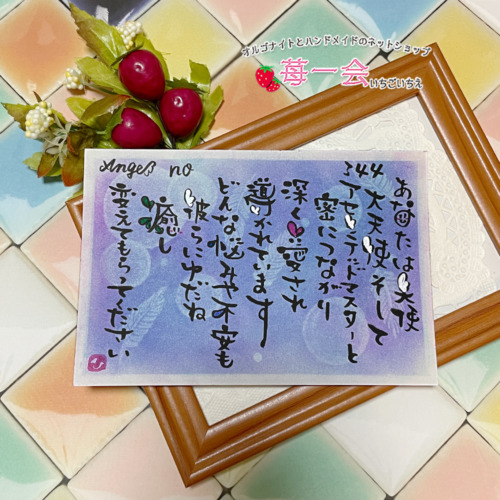 オルゴナイトとハンドメイドのネットショップ
苺一会
いちごいちえ
Angel no
344
あなたは天使
大天使そして
アセンテッドマスターと
密につながり
深く愛され
導かれています
どんな悩みや不安も
彼らにゆだね
癒し
変えてもらってください